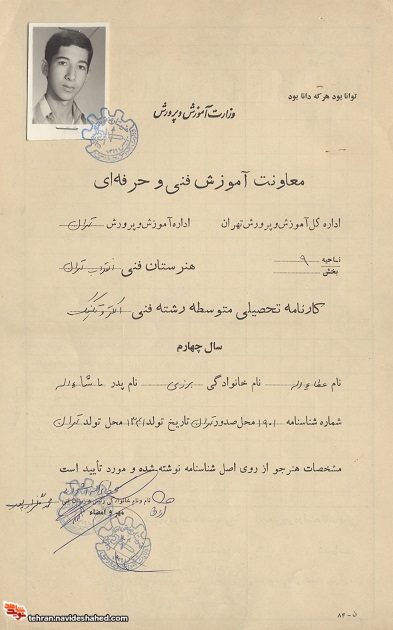 توانا بود هر که دانا بود
وزارت آموزش و پرورش
معاونت آموزش فنی و حرفه‌ای
اداره کل آموزش و پرورش تهران اداره آموزش و پرورش تهران
ناحیه ۹
بخش
هنرستان فنی انقلاب تهران
کارنامه تحصیلی متوسطه رشته فنی الکتروتکنیک
سال چهارم
نام عطاءاله نام خانوادگی یزدی نام پدر ماشاءاله
شماره شناسنامه ۱۹۰۱ محل صدور تهران تاریخ تولد ۱۳۴۱ محل تولد تهران
مشخصات هنرجو از روی اصل شناسنامه نوشته شده و مورد تأیید است
نام و نام خانوادگی رئیس هنرستان فنی
مهر و امضاء
ن - ۸۴
tehran.navideshahed.com